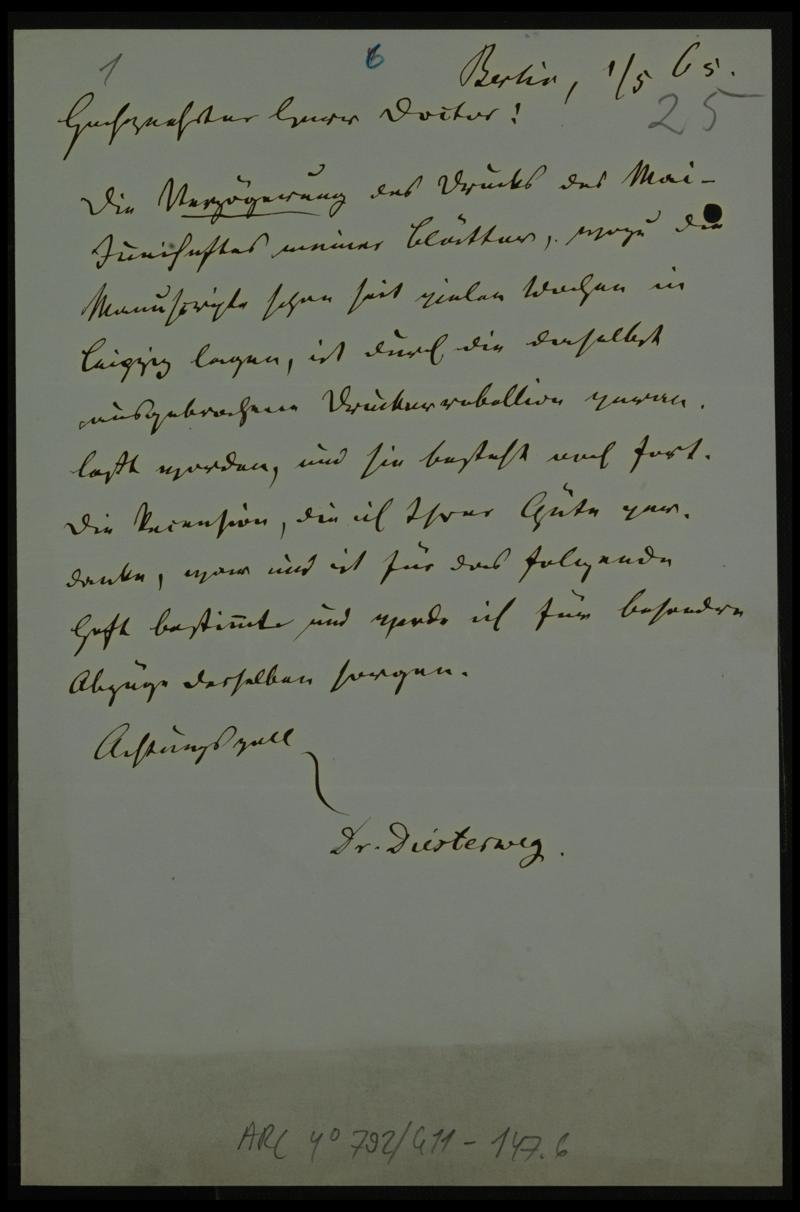 1
6
Berlin, 1/5 65.
25
Hochgeehrter Herr Doctor!
Die Verzögerung des Drucks des Mai-
Juniheftes meiner Blätter, wozu die
Manuscripte schon seit vielen Wochen in
Leipzig lagen, ist durch die daselbst
ausgebrochene Druckerrebellion veran-
laßt worden, und sie besteht noch fort.
Die Recension, die ich Ihrer Güte ver-
danke, war und ist für das folgende
Heft bestimmt und werde ich für besondre
Abzüge derselben sorgen.
Achtungsvoll
Dr. Diesterweg.
ARC 4° 792/G11 - 147.6